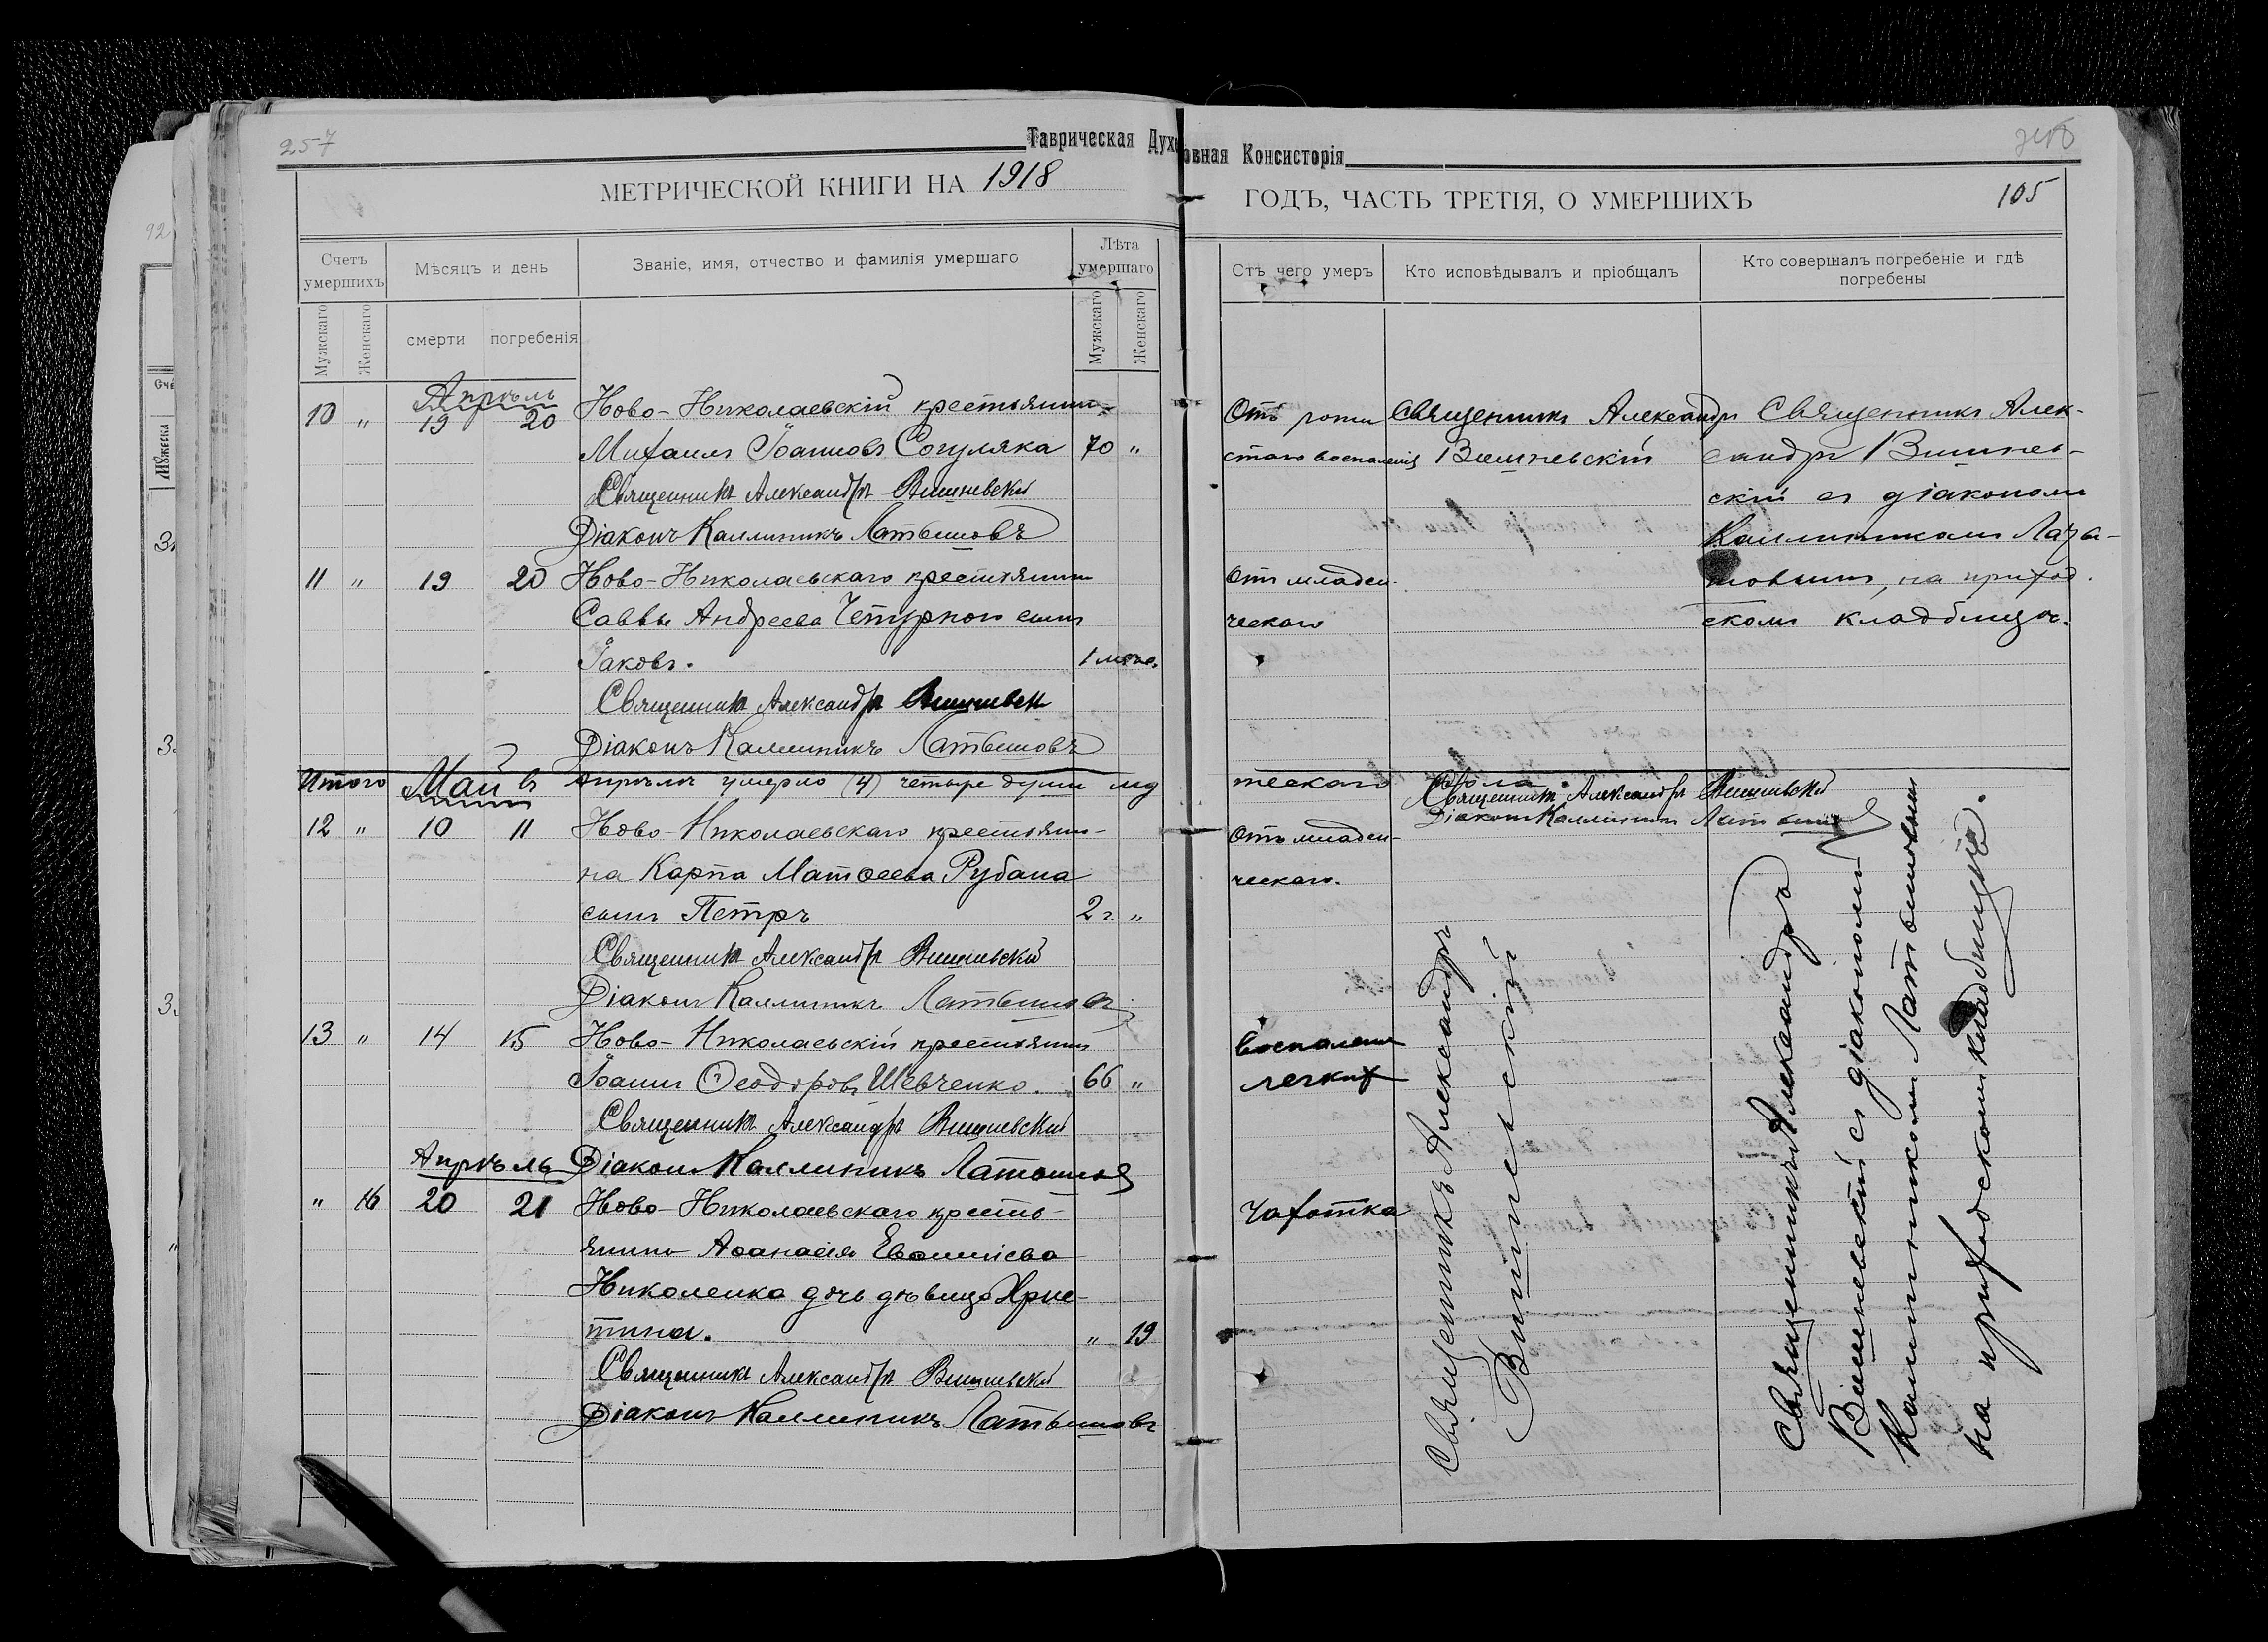 257
Таврическая Духовная Консисторія
МЕТРИЧЕСКОЙ КНИГИ НА 1918
ГОДЪ, ЧАСТЬ ТРЕТІЯ, О УМЕРШИХЪ
105
92
Счетъ умершихъ
Мѣсяцъ и день
Званіе, имя, отчество и фамилія умершаго
Лѣта умершаго
Мужскаго
Женскаго
смерти
погребенія
Мужскаго
Женскаго
Отъ чего умеръ
Кто исповѣдывалъ и пріобщалъ
Кто совершалъ погребеніе и гдѣ
погребены
Апрѣль
10 " 19 20 Ново-Николаевскій крестьянин
Михаилъ Іоанновъ Согуляка 70 "
Священникъ Александръ Вишневскій
Діаконъ Каллиникъ Латышовъ
11 " 19 20 Ново-Николаевскаго крестьянина
Саввы Андреева Чепурного сынъ
Іаковъ. 1 мѣс.
Священникъ Александръ Вишневскій
Діаконъ Каллиникъ Латышовъ
Итого въ Апрѣлѣ умерло (4) четыре души муж
Май
12 " 10 11 Ново-Николаевскаго крестьяни-
на Карпа Матѳеева Рубана
сынъ Петръ 2 г. "
Священникъ Александръ Вишневскій
Діаконъ Каллиникъ Латышовъ
13 " 14 15 Ново-Николаевскій крестьянинъ
Іоаннъ Ѳеодоровъ Шевченко. 66 "
Священникъ Александръ Вишневскій
Апрѣль Діаконъ Каллиникъ Латышовъ
" 16 20 21 Ново-Николаевскаго кресть-
янина Аѳанасія
Николенка дочь дѣвица Хрис-
тина. " 19
Священникъ Александръ Вишневскій
Діаконъ Каллиникъ Латышовъ
Отъ
воспаленія
Священникъ Александръ
Вишневскій
Священникъ Алек-
сандръ Вишнев-
скій съ діакономъ
Каллиникомъ Латы-
шовымъ, на приход-
скомъ кладбищѣ.
Отъ младен-
ческаго
ческаго пола.
Священникъ Александръ Вишневскій
Діаконъ Каллиникъ Латышовъ
Отъ младен-
ческаго.
Воспаленіе
легких
Чахотка
Священникъ Александръ
Вишневскій
Священникъ Александръ
Вишневскій съ діакономъ
Каллиникомъ Латышовымъ
на приходскомъ кладбищѣ.